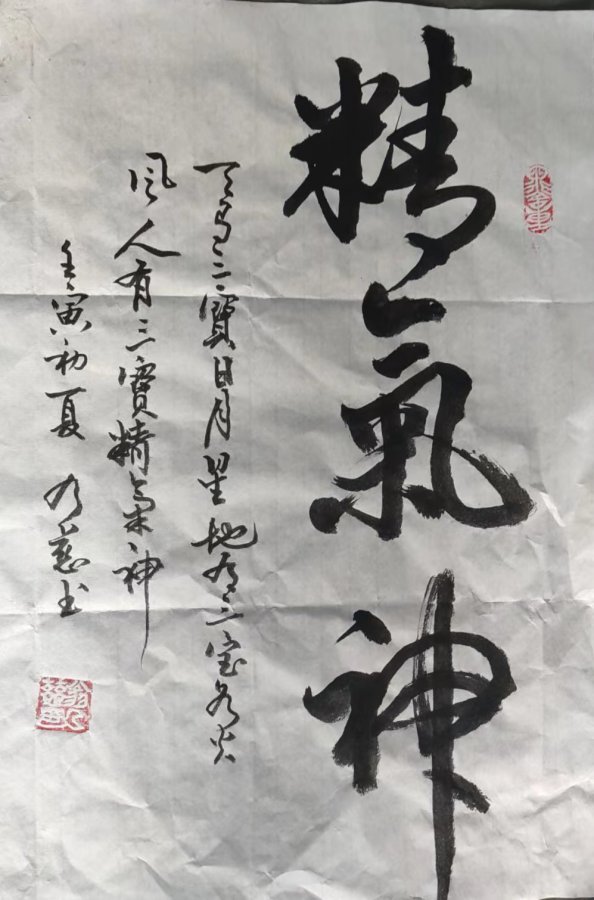 精氣神
天有三寶日月星地有三宝水火
風人有三寶精氣神
壬寅初夏 乃慈书